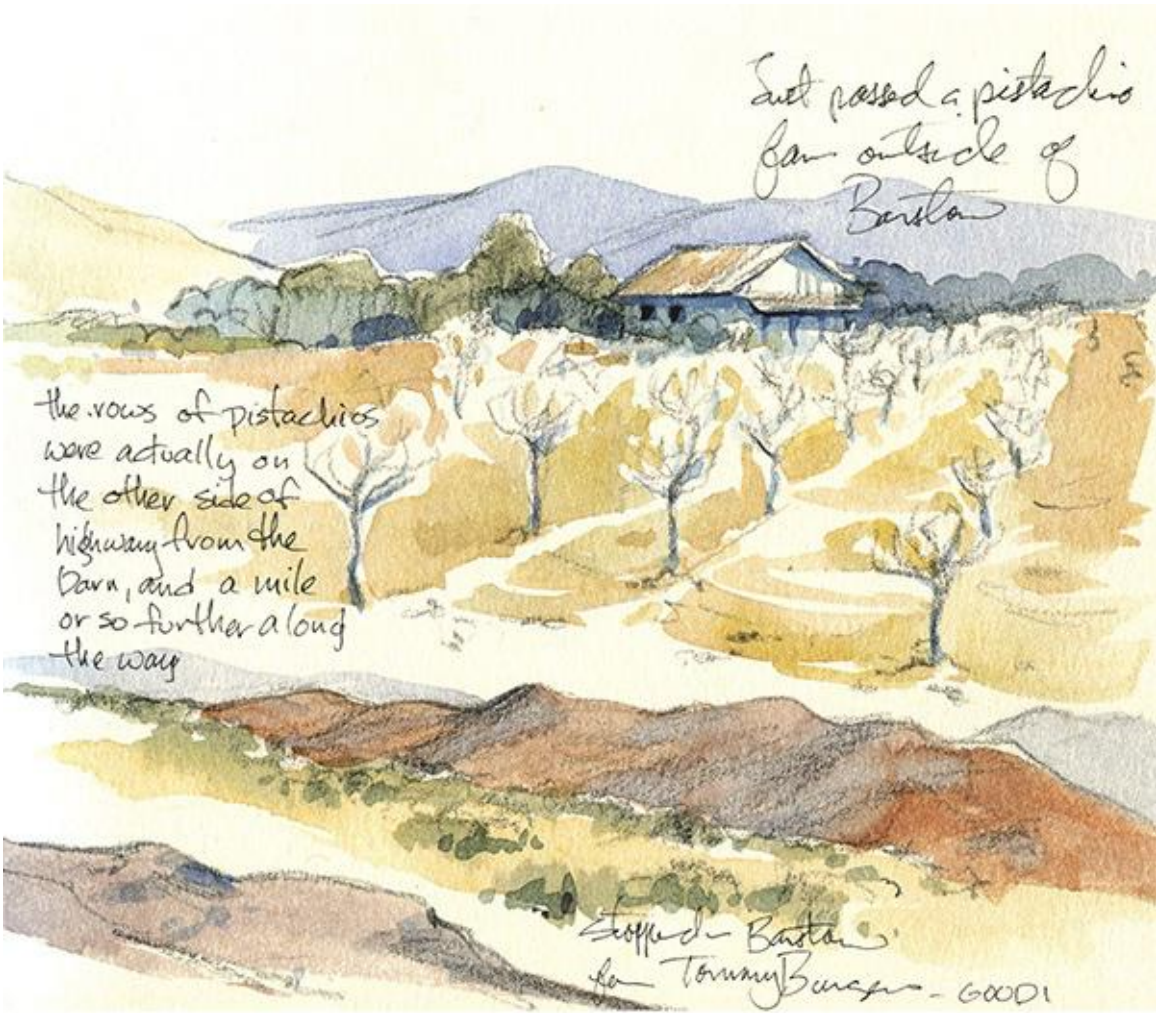 Just passed a pistachio
farm outside of
Barstow
the rows of pistachios
were actually on
the other side of
highway from the
barn, and a mile
or so further along
the way
Stopped in Barstow
for Tommy Burgers - GOOD!